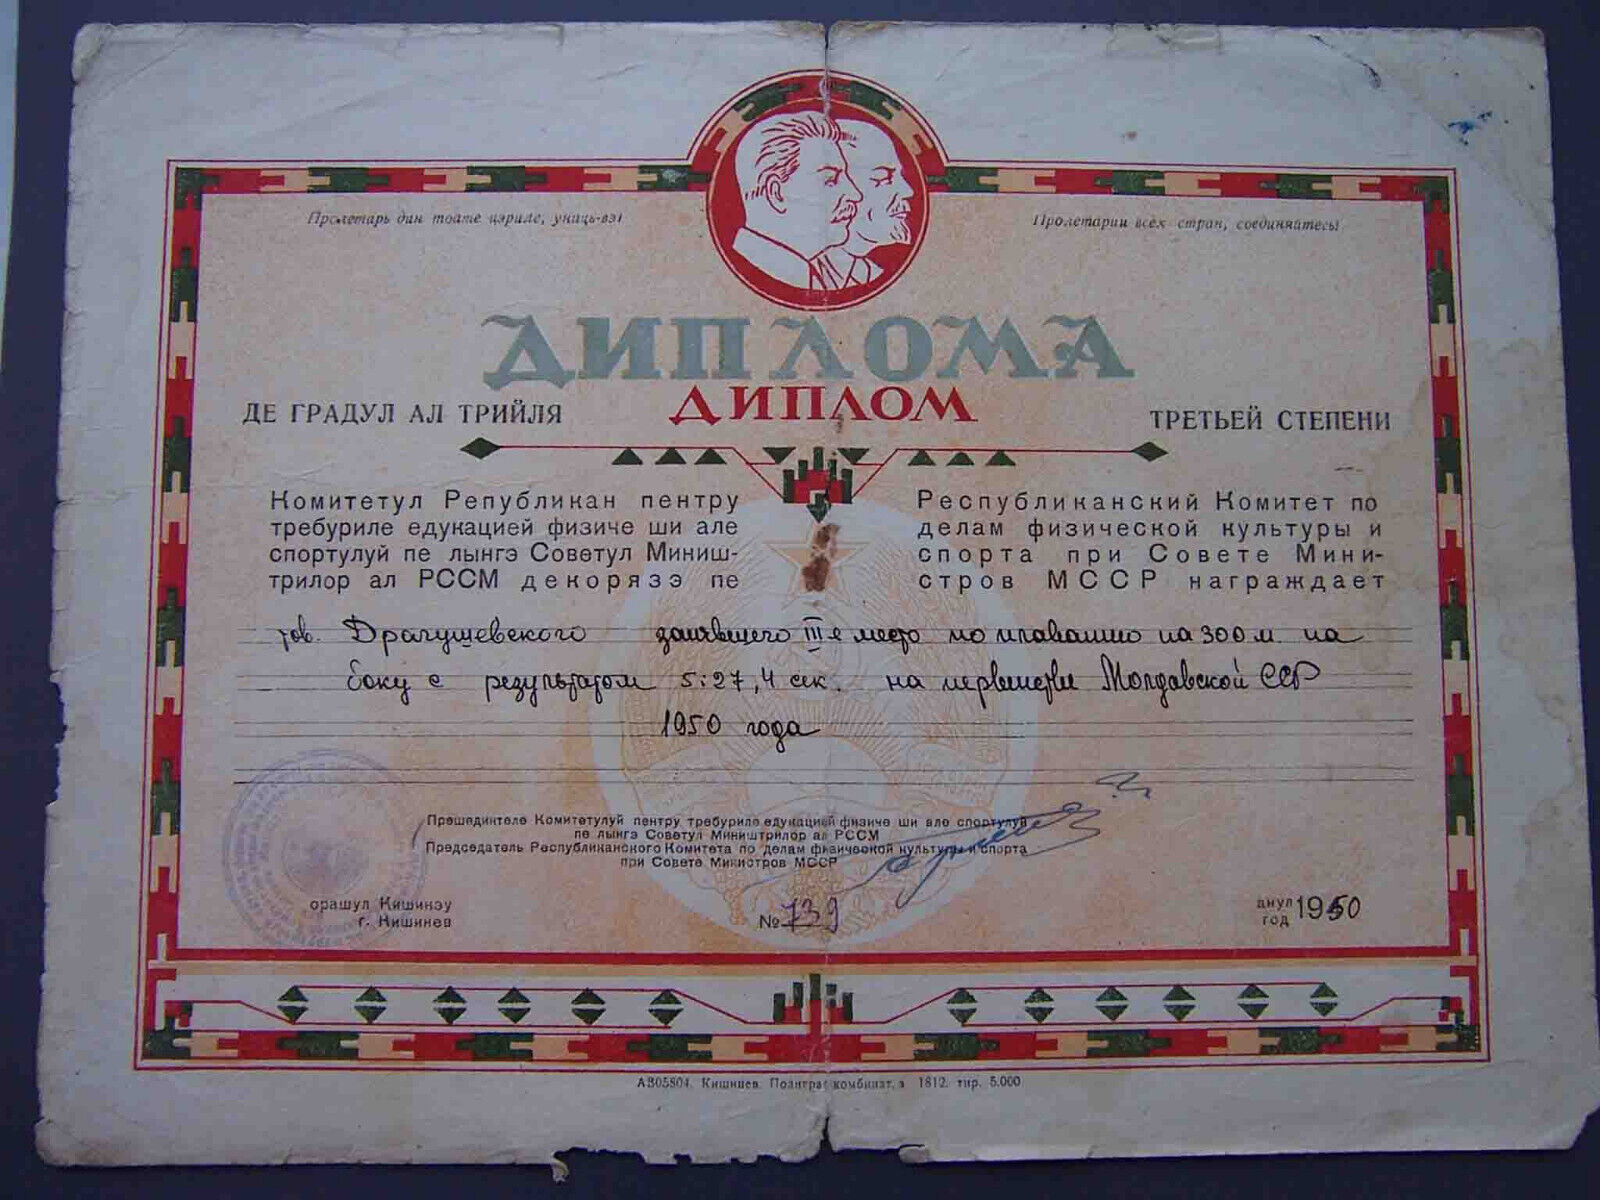 Пролетарь дин тоате цэриле, униць-вэ!
Пролетарии всех стран, соединяйтесь!
ДИПЛОМА
ДИПЛОМ
ДЕ ГРАДУЛ АЛ ТРИЙЛЯ
ТРЕТЬЕЙ СТЕПЕНИ
Комитетул Републикан пентру
требуриле едукацией физиче ши але
спортулуй пе лынгэ Советул Миниш-
трилор ал РССМ декорязэ пе
Республиканский Комитет по
делам физической культуры и
спорта при Совете Мини-
стров МССР награждает
тов. Драгушевского занявшего III-е место по плаванию на 300 м. на
боку с результатом 5:27,4 сек. на первенстве Молдавской ССР
1950 года
Прешединтеле Комитетулуй пентру требуриле едукацией физиче ши але спортулуй
пе лынгэ Советул Миништрилор ал РССМ
Председатель Республиканского Комитета по делам физической культуры и спорта
при Совете Министров МССР
орашул Кишинэу
г. Кишинев
№ 739
анул
год 1950
АБ05804. Кишинев. Полиграфкомбинат, з 1812. тир. 5.000